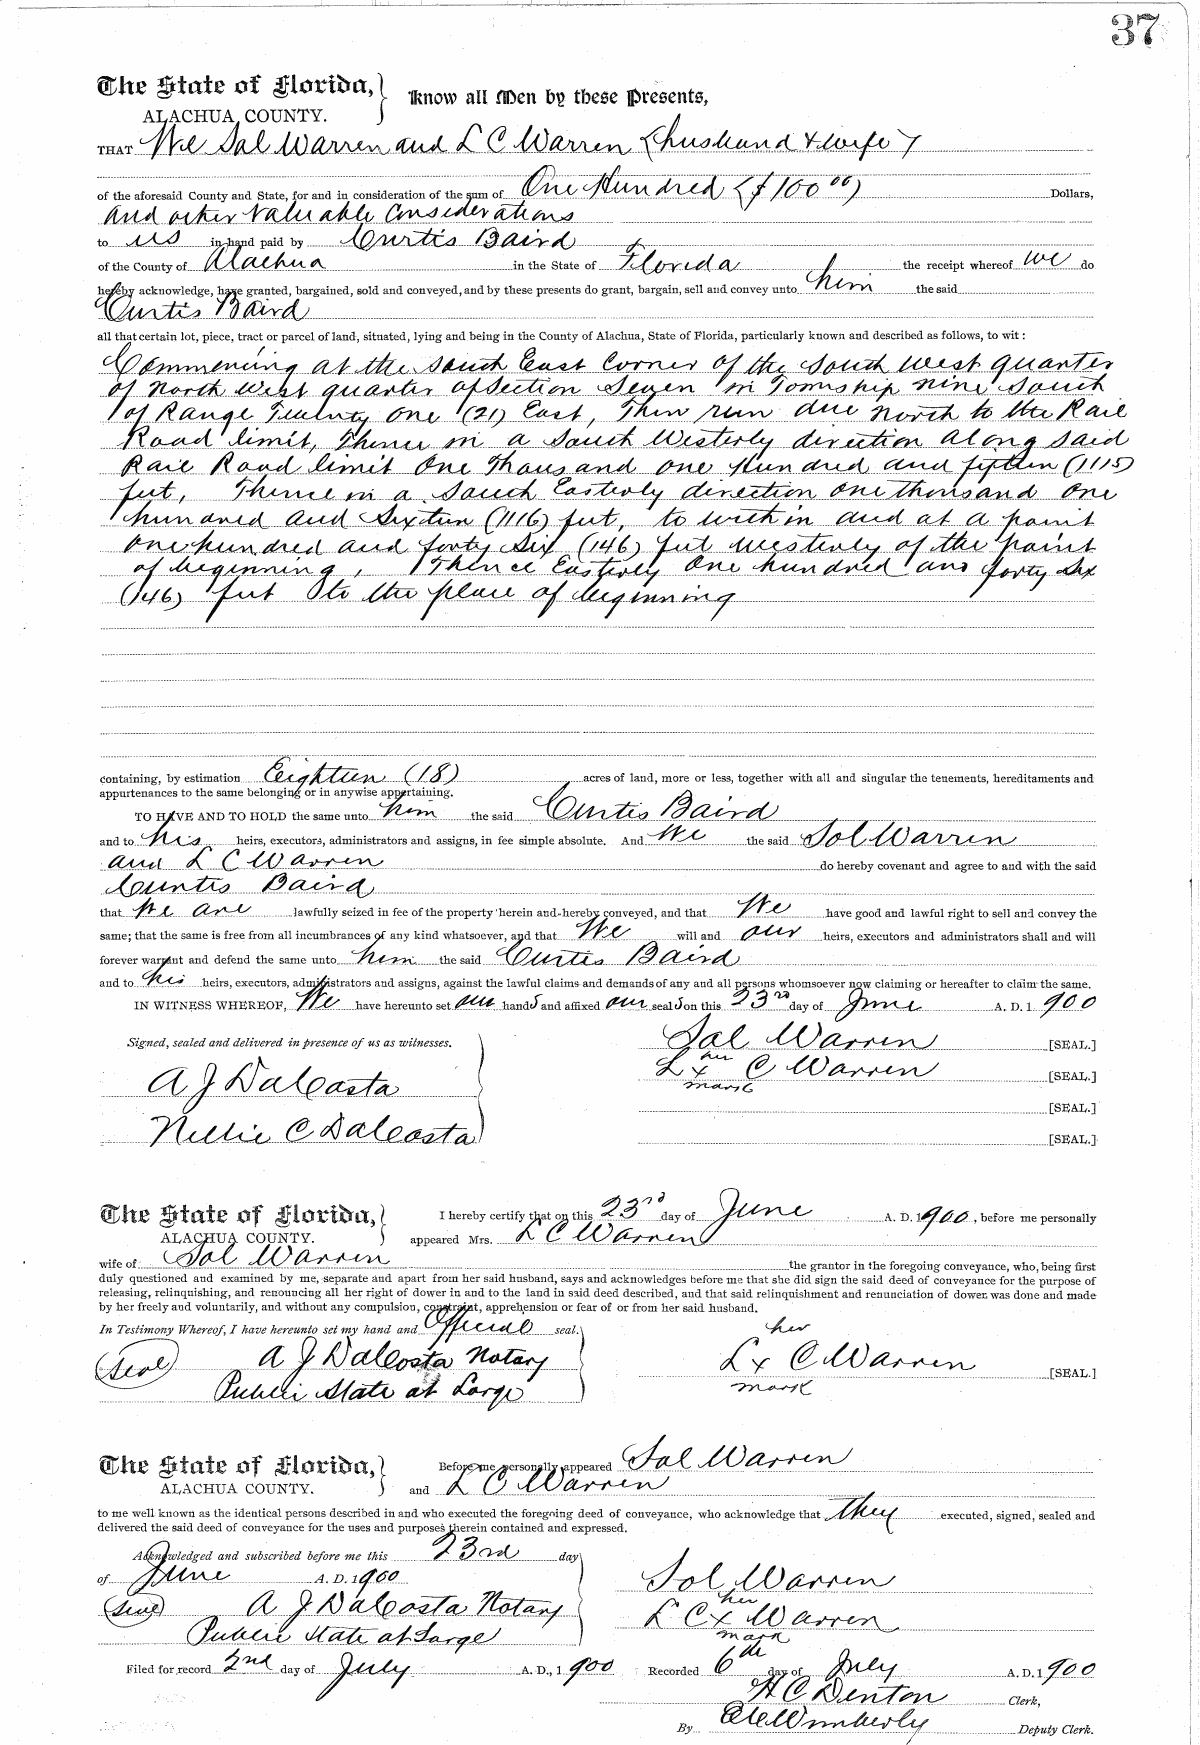 37
The State of Florida, } Know all Men by these Presents,
ALACHUA COUNTY.
THAT We Sol Warren and L C Warren (husband & wife)
of the aforesaid County and State, for and in consideration of the sum of One Hundred ($100 00) Dollars,
and other valuable considerations
to us in hand paid by Curtis Baird
of the County of Alachua in the State of Florida the receipt whereof we do
hereby acknowledge, have granted, bargained, sold and conveyed, and by these presents do grant, bargain, sell and convey unto him the said
Curtis Baird
all that certain lot, piece, tract or parcel of land, situated, lying and being in the County of Alachua, State of Florida, particularly known and described as follows, to wit:
Commencing at the South East Corner of the South West quarter
of North West quarter of Section Seven in Township nine South
of Range Twenty one (21) East, Then run due North to the Rail
Road limit, Thence in a South Westerly direction along said
Rail Road limit One Thousand one Hundred and fifteen (1115)
feet, Thence in a South Easterly direction one thousand one
hundred and Sixteen (1116) feet, to within and at a point
one hundred and forty Six (146) feet Westerly of the point
of beginning, Thence Easterly One hundred and forty six
(146) feet to the place of beginning
containing, by estimation Eighteen (18) acres of land, more or less, together with all and singular the tenements, hereditaments and
appurtenances to the same belonging or in anywise appertaining.
TO HAVE AND TO HOLD the same unto him the said Curtis Baird
and to his heirs, executors, administrators and assigns, in fee simple absolute. And We the said Sol Warren
and L C Warren do hereby covenant and agree to and with the said
Curtis Baird
that We are lawfully seized in fee of the property herein and hereby conveyed, and that We have good and lawful right to sell and convey the
same; that the same is free from all incumbrances of any kind whatsoever, and that We will and our heirs, executors and administrators shall and will
forever warrant and defend the same unto him the said Curtis Baird
and to his heirs, executors, administrators and assigns, against the lawful claims and demands of any and all persons whomsoever now claiming or hereafter to claim the same.
IN WITNESS WHEREOF, We have hereunto set our hands and affixed our seals on this 23rd day of June A. D. 1900
Signed, sealed and delivered in presence of us as witnesses. Sol Warren [SEAL.]
her
A J DaCosta L x C Warren [SEAL.]
mark
[SEAL.]
Nellie C DaCosta [SEAL.]
The State of Florida, } I hereby certify that on this 23rd day of June A. D. 1900, before me personally
ALACHUA COUNTY. appeared Mrs. L C Warren
wife of Sol Warren the grantor in the foregoing conveyance, who, being first
duly questioned and examined by me, separate and apart from her said husband, says and acknowledges before me that she did sign the said deed of conveyance for the purpose of
releasing, relinquishing, and renouncing all her right of dower in and to the land in said deed described, and that said relinquishment and renunciation of dower was done and made
by her freely and voluntarily, and without any compulsion, constraint, apprehension or fear of or from her said husband.
In Testimony Whereof, I have hereunto set my hand and Official seal. her
(Seal) A J DaCosta Notary L x C Warren [SEAL.]
Public State at Large mark
The State of Florida, } Before me personally appeared Sol Warren
ALACHUA COUNTY. and L C Warren
to me well known as the identical persons described in and who executed the foregoing deed of conveyance, who acknowledge that they executed, signed, sealed and
delivered the said deed of conveyance for the uses and purposes therein contained and expressed.
Acknowledged and subscribed before me this 23rd day
of June A. D. 1900 Sol Warren
her
(Seal) A J DaCosta Notary L C x Warren
Public State at Large mark
Filed for record 2nd day of July A. D., 1900 Recorded 6th day of July A. D. 1900
H C Denton Clerk,
By Wimberly Deputy Clerk.